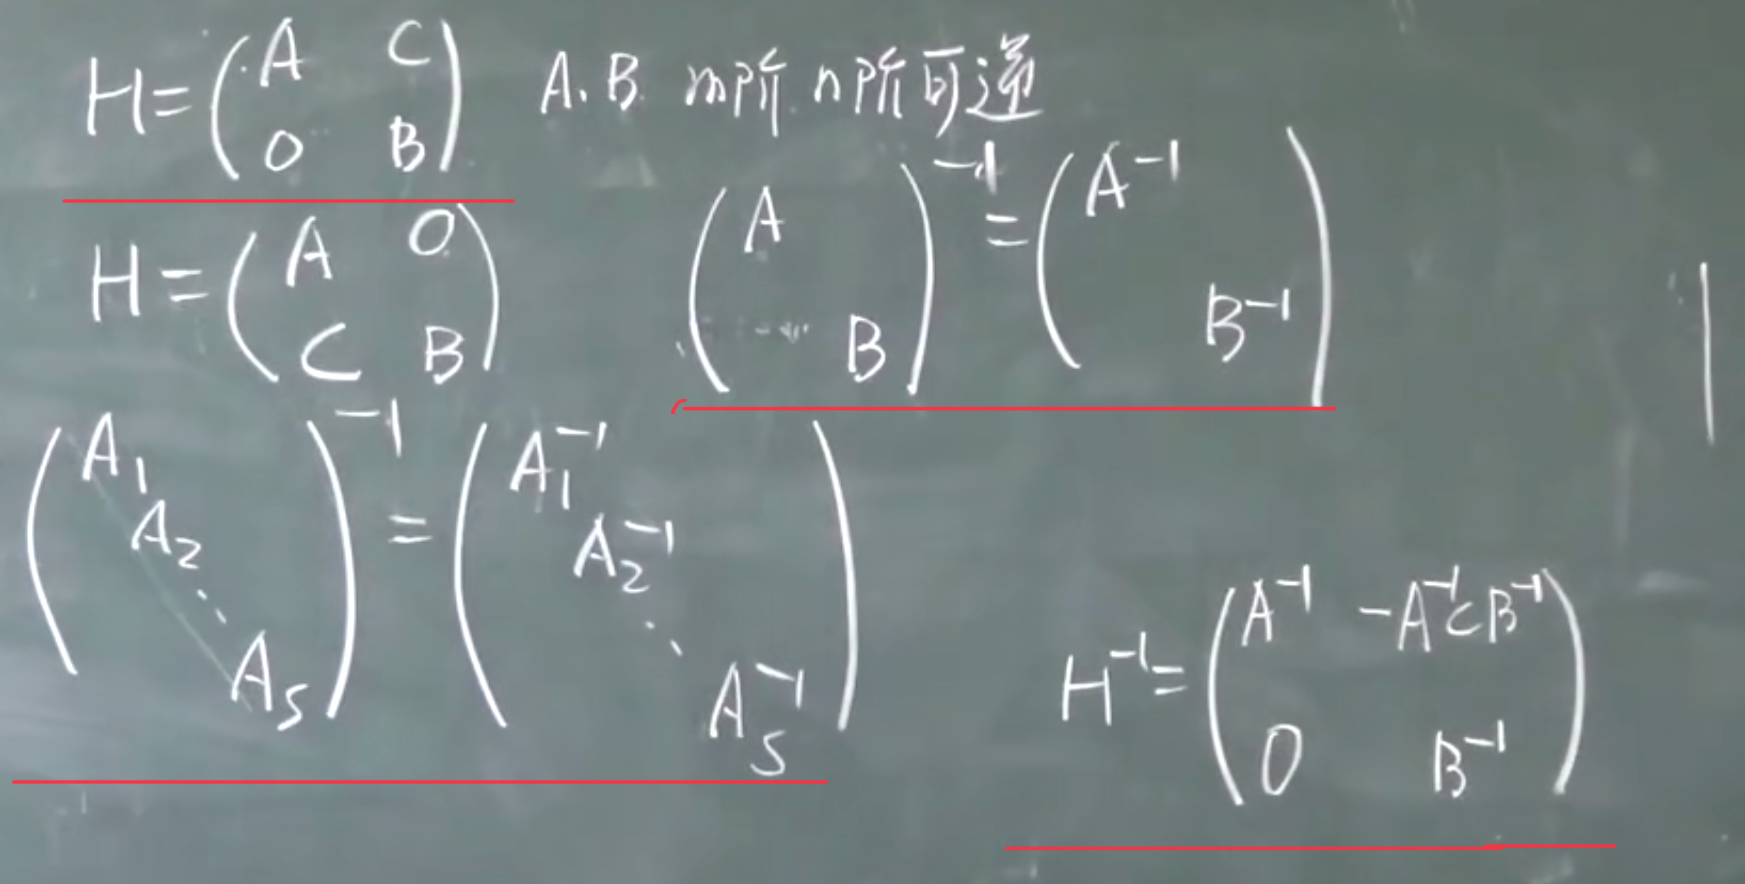 H=(A C
0 B) A.B m阶 n阶可逆
H=(A 0
C B)
(A
B)⁻¹=(A⁻¹
B⁻¹)
(A₁
A₂
⋱
Aₛ)⁻¹=(A₁⁻¹
A₂⁻¹
⋱
Aₛ⁻¹)
H⁻¹=(A⁻¹ -A⁻¹CB⁻¹
0 B⁻¹)